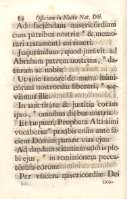 Officium in Nocte Nat. Dñi.
Ad faciendam misericordiam
cum patribus nostris * & memo-
rari testamenti sui sancti.
Jusjurandum, quod juravit ad
Abraham patrem nostrum, * da-
turum se nobis:
Ut sine timore, de manu inimi-
corum nostrorum liberati, * ser-
viamus illi.
In sanctitate & justitia coram
ipso, * omnibus diebus nostris.
Et tu puer, Propheta Altissimi
vocaberis: * præibis enim ante fa-
ciem Domini parare vias ejus.
Ad dandam scientiam salutis ple-
bi ejus, * in remissionem pecca-
torum eorum.
Per viscera misericordiæ Dei